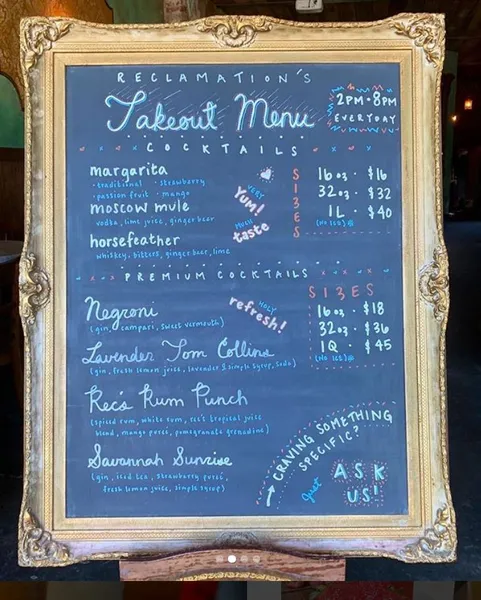 RECLAMATION'S
Takeout Menu
2PM-8PM
EVERYDAY
COCKTAILS
margarita
• traditional • strawberry
• passion fruit • mango
moscow mule
vodka, lime juice, ginger beer
horsefeather
whiskey, bitters, ginger beer, lime
VERY
Yum!
MUCH
taste
SIZES
16oz • $16
32oz • $32
1L • $40
(NO ICE)
PREMIUM COCKTAILS
Negroni
(gin, campari, sweet vermouth)
Lavender Tom Collins
(gin, fresh lemon juice, lavender & simple syrup, soda)
Rec's Rum Punch
(spiced rum, white rum, rec's tropical juice
blend, mango puree, pomegranate grenadine)
Savannah Sunrise
(gin, iced tea, strawberry puree,
fresh lemon juice, simple syrup)
HOLY
refresh!
SIZES
16oz • $18
32oz • $36
1Q • $45
(NO ICE)
CRAVING SOMETHING
SPECIFIC?
Just
ASK
US!